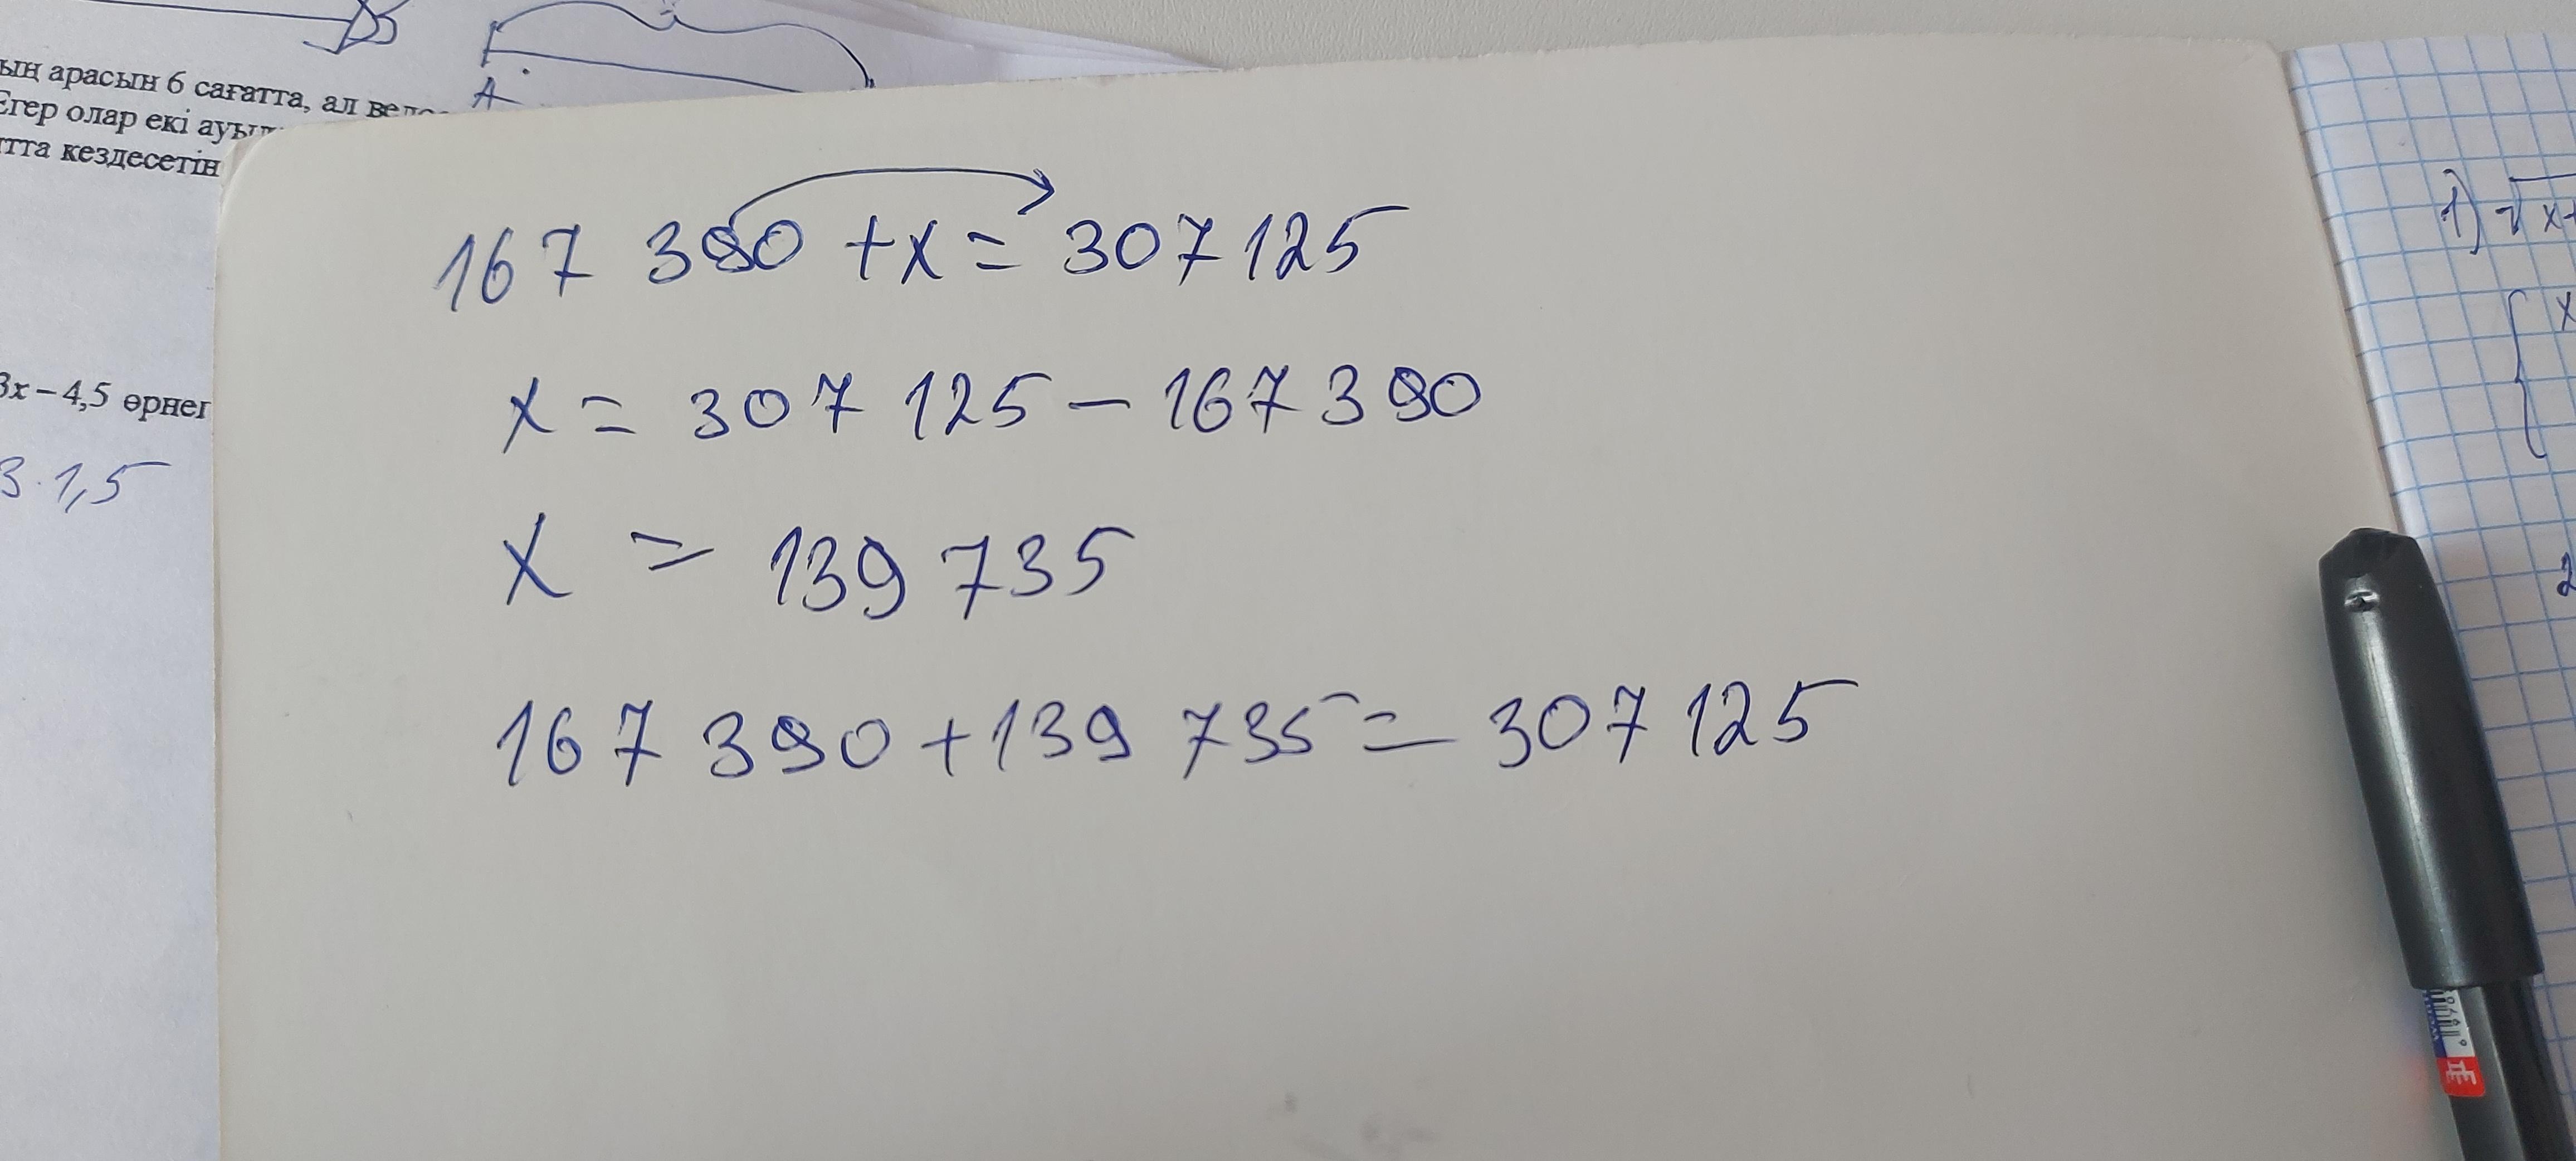 ың арасын 6 сағатта, ал
Егер олар екі
кездесетін
A
3x – 4,5
3 · 1,5
167 390 + x = 307 125
x = 307 125 – 167 390
x = 139 735
167 390 + 139 735 = 307 125
1) √x+
{ x
2